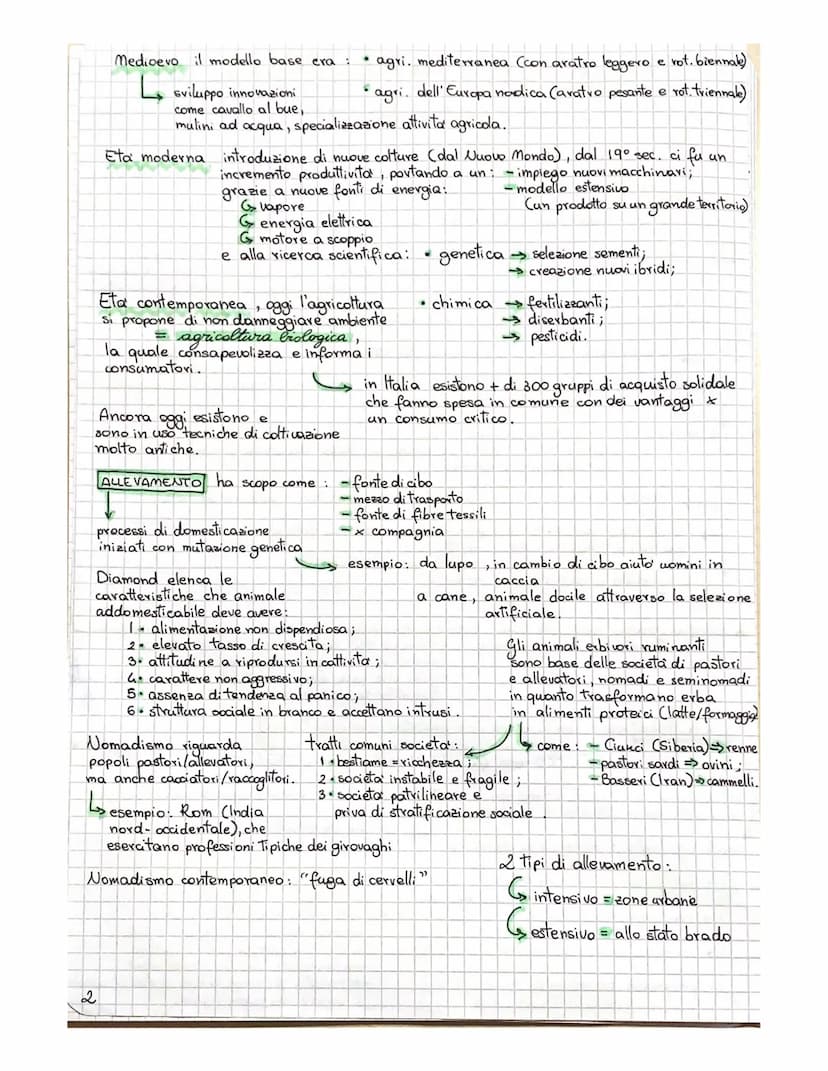 Medioevo il modello base era : • agri. mediterranea (con aratro leggero e rot. biennale)
sviluppo innovazioni • agri. dell'Europa nordica (aratro pesante e rot. triennale)
come cavallo al bue,
mulini ad acqua, specializzazione attività agricola.
Età moderna introduzione di nuove colture (dal Nuovo Mondo), dal 19° sec. ci fu un
incremento produttività, portando a un : - impiego nuovi macchinari;
grazie a nuove fonti di energia: - modello estensivo
vapore (un prodotto su un grande territorio)
energia elettrica
motore a scoppio
e alla ricerca scientifica: • genetica → selezione sementi;
→ creazione nuovi ibridi;
Età contemporanea, oggi l'agricoltura • chimica → fertilizzanti;
si propone di non danneggiare ambiente → diserbanti;
= agricoltura biologica, → pesticidi.
la quale consapevolizza e informa i
consumatori.
in Italia esistono + di 300 gruppi di acquisto solidale
che fanno spesa in comune con dei vantaggi x
un consumo critico.
Ancora oggi esistono e
sono in uso tecniche di coltivazione
molto antiche.
ALLEVAMENTO ha scopo come : - fonte di cibo
- mezzo di trasporto
- fonte di fibre tessili
- x compagnia
processi di domesticazione
iniziati con mutazione genetica
esempio: da lupo, in cambio di cibo aiutò uomini in
caccia
a cane, animale docile attraverso la selezione
artificiale.
Diamond elenca le
caratteristiche che animale
addomesticabile deve avere:
1• alimentazione non dispendiosa;
2• elevato tasso di crescita;
3• attitudine a riprodursi in cattività;
4• carattere non aggressivo;
5• assenza di tendenza al panico;
6• struttura sociale in branco e accettano intrusi.
Gli animali erbivori ruminanti
sono base delle società di pastori
e allevatori, nomadi e seminomadi
in quanto trasformano erba
in alimenti proteici (latte/formaggio)
come : - Ciukci (Siberia) ⇒ renne
- pastori sardi ⇒ ovini;
- Basseri (Iran) ⇒ cammelli.
Nomadismo riguarda
popoli pastori/allevatori,
ma anche cacciatori/raccoglitori.
tratti comuni società :
1• bestiame = ricchezza;
2• società instabile e fragile;
3• società patrilineare e
priva di stratificazione sociale.
esempio: Rom (India
nord-occidentale), che
esercitano professioni tipiche dei girovaghi
Nomadismo contemporaneo: "fuga di cervelli"
2 tipi di allevamento:
intensivo = zone urbane
estensivo = allo stato brado
2